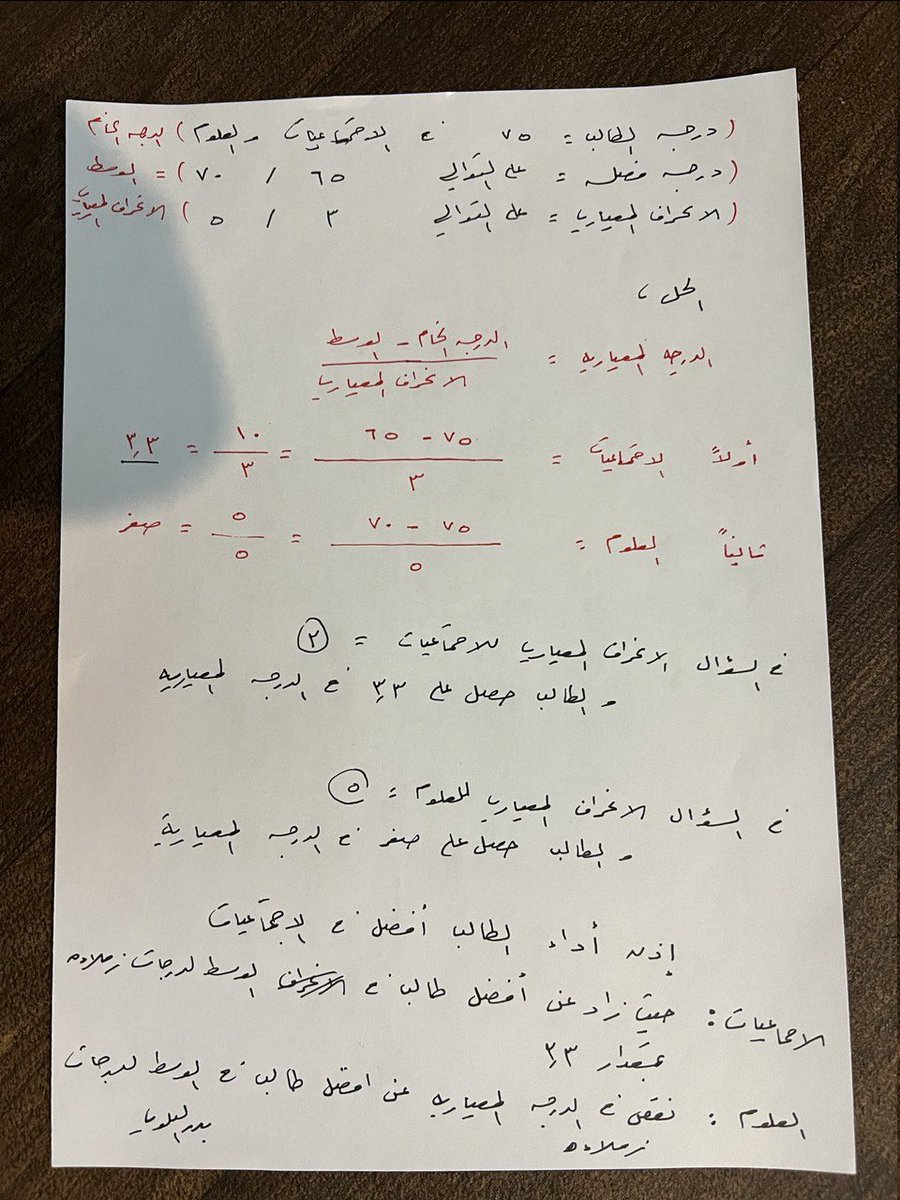 (درجة الطالب = ٧٥ في الاجتماعيات والعلوم) الدرجة الخام
(درجة فصله = على التوالي ٦٥ / ٧٠) = الوسط
(الانحراف المعياري = على التوالي ٣ / ٥) الانحراف المعياري
الحل ،
الدرجة المعيارية = الدرجة الخام - الوسط
الانحراف المعياري
أولاً الاجتماعيات = ٧٥ - ٦٥ / ٣ = ١٠ / ٣ = ٣,٣
ثانياً العلوم = ٧٥ - ٧٠ / ٥ = ٥ / ٥ = صفر
في السؤال الانحراف المعياري للاجتماعيات = ٣
والطالب حصل على ٣,٣ في الدرجة المعيارية
في السؤال الانحراف المعياري للعلوم = ٥
والطالب حصل على صفر في الدرجة المعيارية
إذن أداء الطالب أفضل في الاجتماعيات
الاجتماعيات : حيث زاد عن أفضل طالب في الانحراف الوسط لدرجات زملاءه
بمقدار ٣,٣
العلوم : نقص في الدرجة المعيارية عن افضل طالب في الوسط للدرجات
زملاءه
بدر البلوي